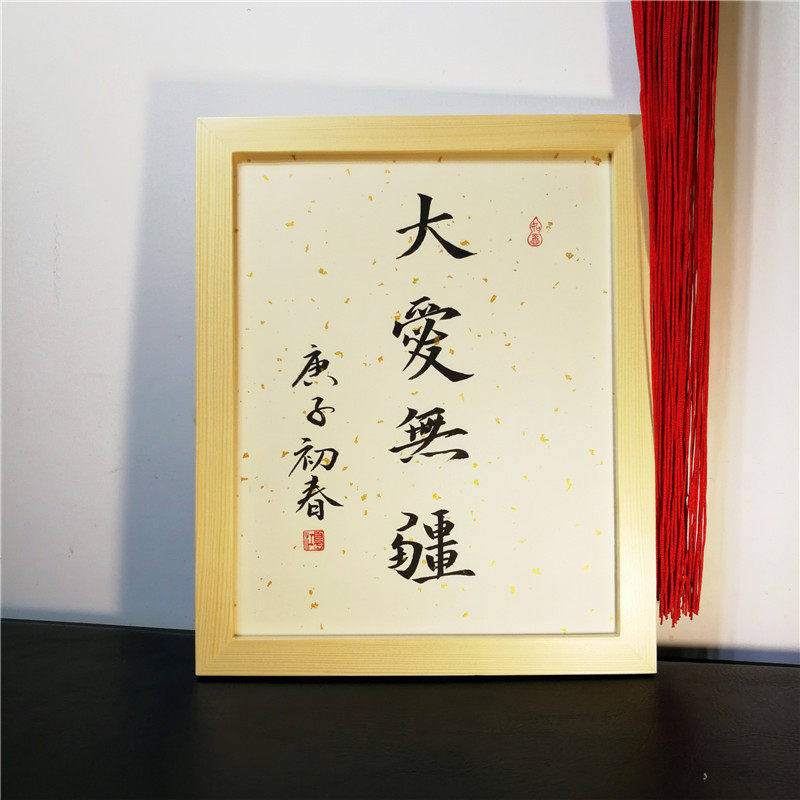 大愛無疆
庚子初春